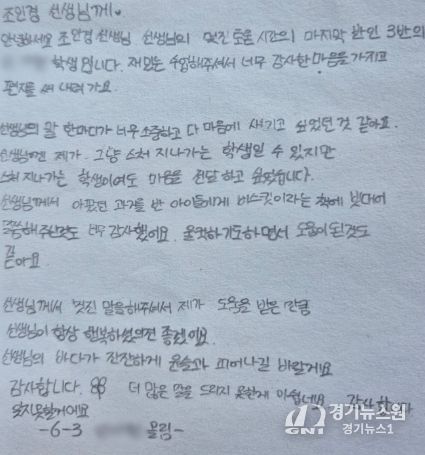 조인경 선생님께
안녕하세요 조인경 선생님 선생님의 멋진 도움 시간의 마지막 반인 3반의
학생입니다. 재밌는 수업해주셔서 너무 감사한 마음을 가지고
편지를 써 내려가요.
선생님의 말 한마디가 너무 소중하고 다 마음에 새기고 싶었던 것 같아요.
선생님에겐 제가 그냥 스쳐 지나가는 학생일 수 있지만
스쳐 지나가는 학생이여도 마음을 전달하고 싶었습니다.
선생님께서 아팠던 과거를 반 아이들에게 비스킷이라는 책에 빗대어
말씀해주신것도 너무 감사했어요. 울컥하기도하면서 도움이 된것도
같아요
선생님께서 멋진 말을해주셔서 제가 도움을 받은 만큼
선생님이 항상 행복하셨으면 좋겠어요.
선생님의 바다가 잔잔하게 윤슬과 피어나길 바랄게요
감사합니다. 더 많은 말을 드리지 못한게 아쉽네요 감사합니다
잊지못할거에요
-6-3 올림-
GN1 경기뉴스원
경기뉴스1